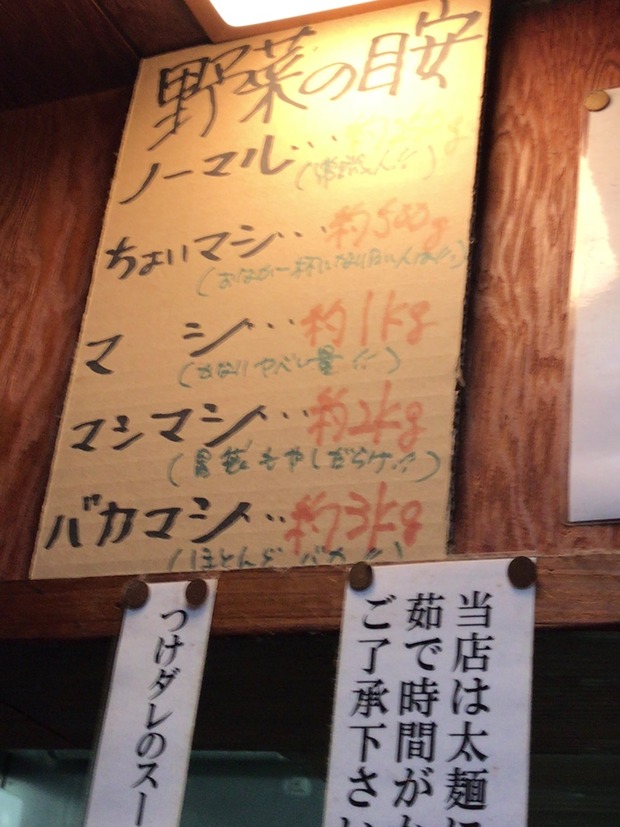 野菜の目安
ノーマル…
(常識人!!)
ちょいマシ…約500g
(おなか一杯になりたい人は!!)
マシ…約1kg
(かなりヤベー量!!)
マシマシ…約2kg
(胃袋もやしだらけ!!)
バカマシ…約3kg
(ほとんどバカ!!)
当店は太麺に
茹で時間がか
ご了承下さい
つけダレのスー